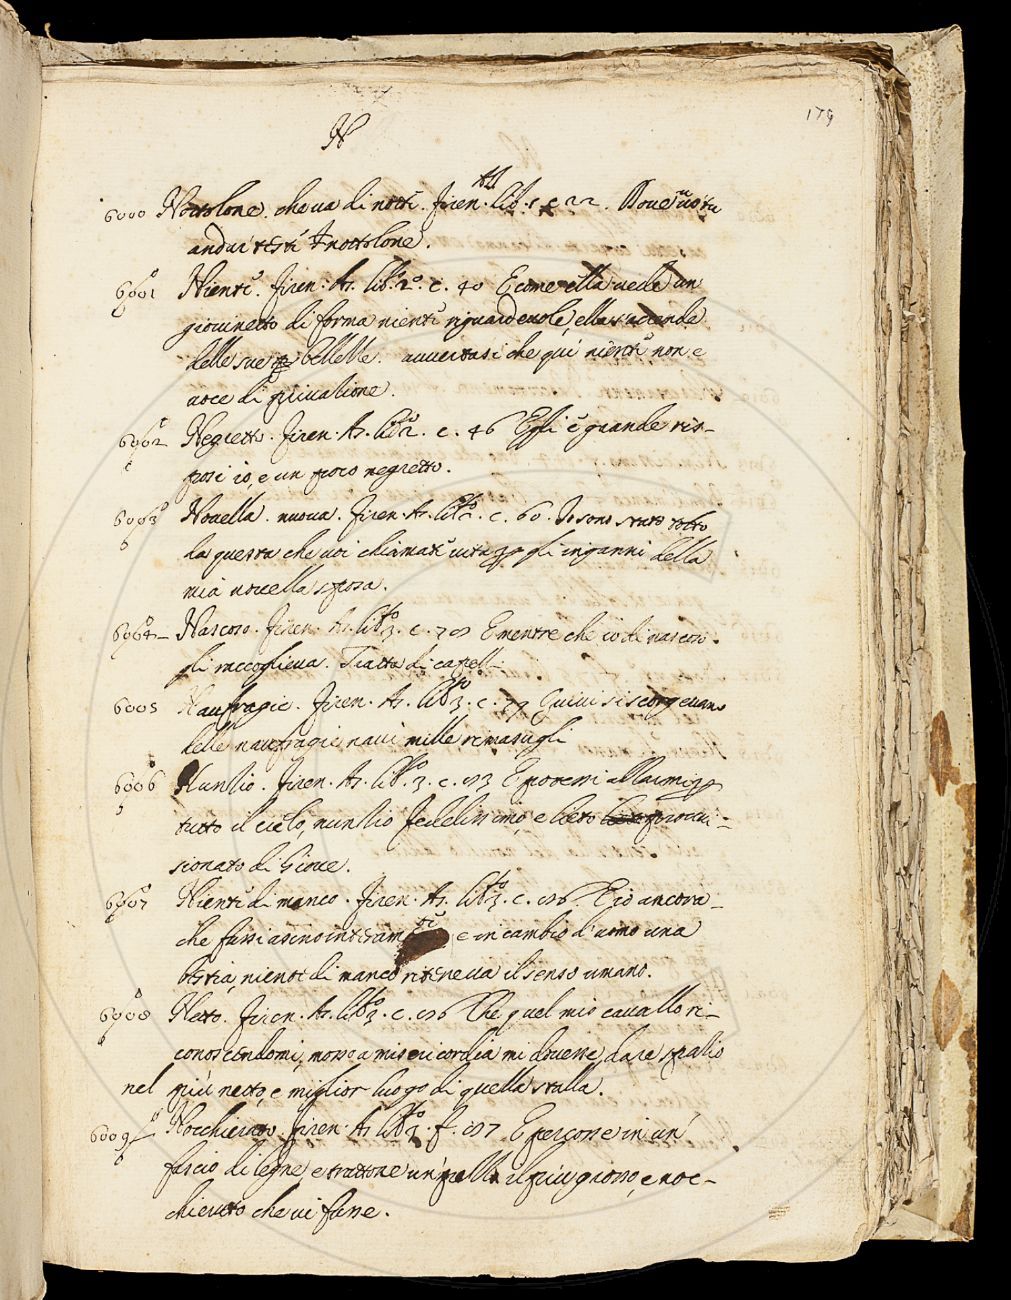 179
N
6000 Nottolone. che va di notte. Firen. As. lib. 1. c. 22. Dove vuo tu
andar testè Nottolone.
6001 Niente. Firen. As. lib.º 2º. c. 40 E come ella vede un
giovinetto di forma niente riguardevole, ella s'accende
delle sue bellezze. avvertasi che quì niente non e
voce di privazione.
6002 Negretto. Firen. As. lib.º 2. c. 46 Egli è grande ris-
posi io, e un poco negretto.
6003 Novella. nuova. Firen. As. lib.º 2. c. 60. Io sono stato tolto
da questa che voi chiamate vita gli inganni della
mia novella sposa.
6004 Nascoso. Firen. As. lib.º 3. c. E mentre che io di nascoso
gli raccoglieva. Tratta di capell-
6005 Naufragie. Firen. As. lib.º 3. c. 79 Quivi si scorgevano
delle naufragie navi mille rimasugli
6006 Nunzio. Firen. As. lib.º 3. c. E
tutto il cielo, nunzio fedelissimo, e lieto provvi-
sionato di Giove.
6007 Niente di manco. Firen. As. lib.º 3. c. Ed io ancora-
che fussi asino interamente e in cambio d'uomo una
bestia, niente di manco riteneva il senso umano.
6008 Netto. Firen. As. lib.º 3. c. Che quel mio cavallo ri-
conoscendomi, mosso a misericordia mi dovesse dare spazio
nel più netto, e miglior luogo di quella stalla.
6009 Nocchieruto. Firen. As. lib.º 3. E percosse in un
fascio di legne, e trattone un il più grosso, e noc-
chieruto che vi fusse.